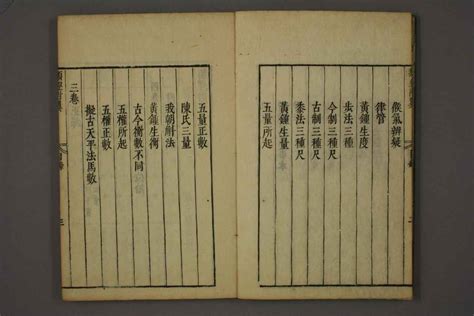 候氣辨疑
律管
黃鐘生度
步法三種
今制三種尺
古制三種尺
黍法三種尺
黃鐘生量
五量所起
五量正數
陳氏三量
我朝斛法
黃鐘生衡
古今衡數不同
五權所起
五權正數
擬古天平法馬數
三卷